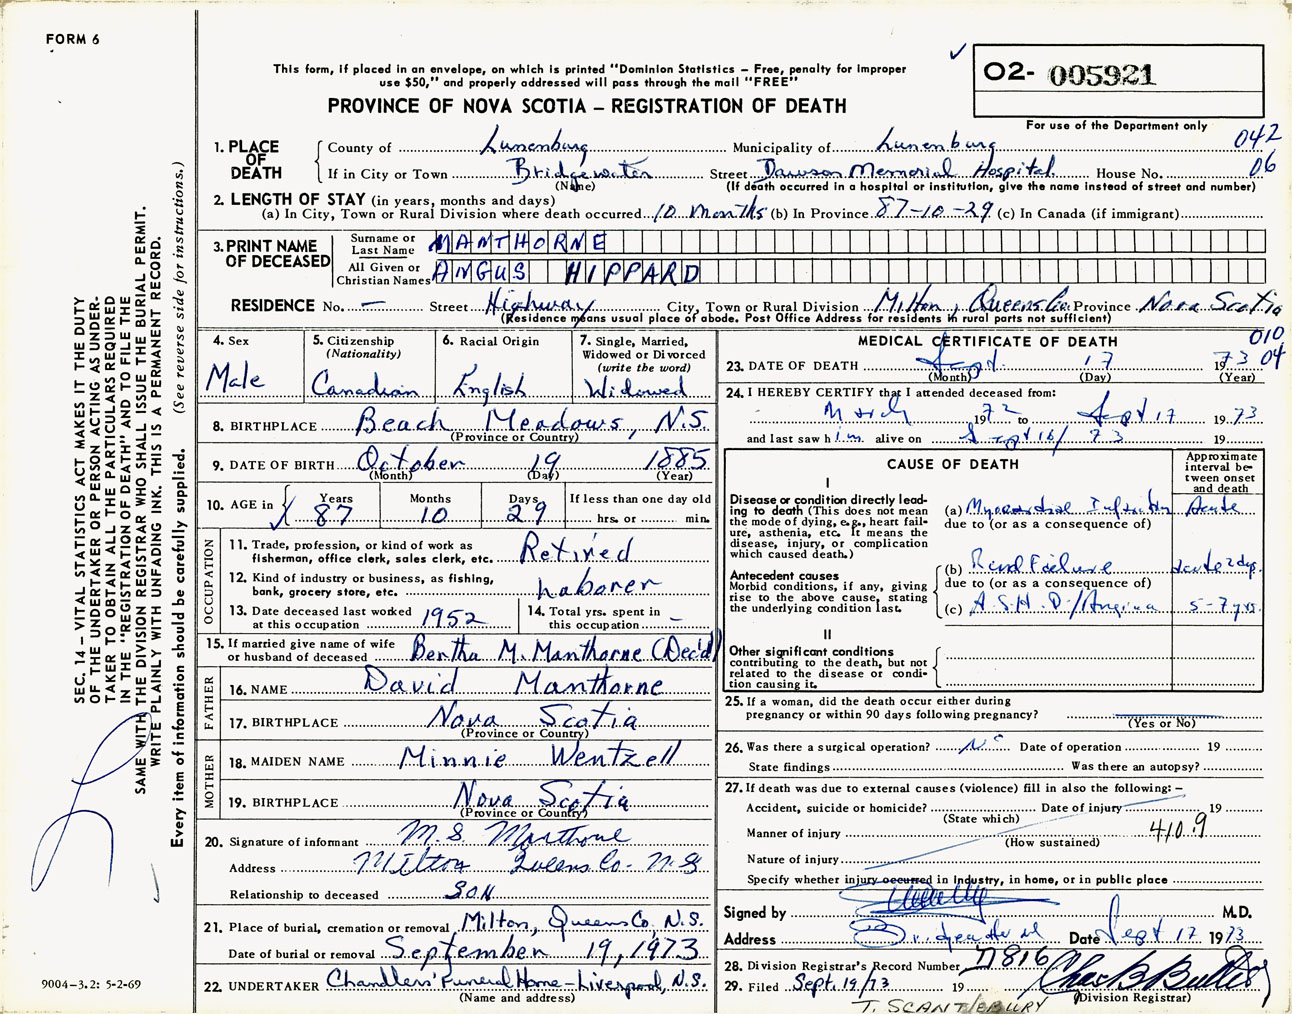 FORM 6
This form, if placed in an envelope, on which is printed "Dominion Statistics – Free, penalty for improper
use $50," and properly addressed will pass through the mail "FREE"
PROVINCE OF NOVA SCOTIA – REGISTRATION OF DEATH
O2- 005921
For use of the Department only
042
06
1. PLACE OF DEATH
County of Lunenburg Municipality of Lunenburg
If in City or Town Bridgewater Street Dawson Memorial Hospital House No.
(Name) (If death occurred in a hospital or institution, give the name instead of street and number)
2. LENGTH OF STAY (in years, months and days)
(a) In City, Town or Rural Division where death occurred 10 Months (b) In Province 87-10-29 (c) In Canada (if immigrant)
3. PRINT NAME OF DECEASED
Surname or Last Name MANTHORNE
All Given or Christian Names ANGUS HIPPARD
RESIDENCE No. — Street Highway City, Town or Rural Division Milton, Queens Co. Province Nova Scotia
(Residence means usual place of abode. Post Office Address for residents in rural parts not sufficient)
4. Sex
Male
5. Citizenship
(Nationality)
Canadian
6. Racial Origin
English
7. Single, Married,
Widowed or Divorced
(write the word)
Widowed
8. BIRTHPLACE Beach Meadows, N.S.
(Province or Country)
9. DATE OF BIRTH October 19 1885
(Month) (Day) (Year)
10. AGE in Years Months Days If less than one day old
87 10 29 hrs. or min.
OCCUPATION
11. Trade, profession, or kind of work as
fisherman, office clerk, sales clerk, etc. Retired
12. Kind of industry or business, as fishing,
bank, grocery store, etc. Laborer
13. Date deceased last worked
at this occupation 1952
14. Total yrs. spent in
this occupation –
15. If married give name of wife
or husband of deceased Bertha M. Manthorne (Dec'd)
FATHER
16. NAME David Manthorne
17. BIRTHPLACE Nova Scotia
(Province or Country)
MOTHER
18. MAIDEN NAME Minnie Wentzell
19. BIRTHPLACE Nova Scotia
(Province or Country)
20. Signature of informant M.S. Manthorne
Address Milton Queens Co. N.S.
Relationship to deceased SON
21. Place of burial, cremation or removal Milton, Queens Co, N.S.
Date of burial or removal September 19, 1973
22. UNDERTAKER Chandlers' Funeral Home – Liverpool, N.S.
(Name and address)
MEDICAL CERTIFICATE OF DEATH
010
04
23. DATE OF DEATH Sept. 17 1973
(Month) (Day) (Year)
24. I HEREBY CERTIFY that I attended deceased from:
March 1972 to Sept 17 1973
and last saw him alive on Sept 16/ 73 19
CAUSE OF DEATH
Approximate
interval be-
tween onset
and death
I
Disease or condition directly lead-
ing to death (This does not mean
the mode of dying, e.g., heart fail-
ure, asthenia, etc. It means the
disease, injury, or complication
which caused death.)
(a) Myocardial Infarction Acute
due to (or as a consequence of)
Antecedent causes
Morbid conditions, if any, giving
rise to the above cause, stating
the underlying condition last.
(b) Renal Failure acute 2 dys.
due to (or as a consequence of)
(c) A.S.H.D./Angina 5-7 yrs.
II
Other significant conditions
contributing to the death, but not
related to the disease or condi-
tion causing it.
25. If a woman, did the death occur either during
pregnancy or within 90 days following pregnancy?
(Yes or No)
26. Was there a surgical operation? No Date of operation 19
State findings Was there an autopsy?
27. If death was due to external causes (violence) fill in also the following: –
Accident, suicide or homicide? Date of injury 19
(State which)
Manner of injury 410.9
(How sustained)
Nature of injury
Specify whether injury occurred in industry, in home, or in public place
Signed by M.D.
Address Bridgewater Date Sept 17 1973
28. Division Registrar's Record Number 77816
29. Filed Sept. 19/73 19 Chas B Butler
(Division Registrar)
T. SCANTLEBURY
SEC. 14 – VITAL STATISTICS ACT MAKES IT THE DUTY
OF THE UNDERTAKER OR PERSON ACTING AS UNDER-
TAKER TO OBTAIN ALL THE PARTICULARS REQUIRED
IN THE "REGISTRATION OF DEATH" AND TO FILE THE
SAME WITH THE DIVISION REGISTRAR WHO SHALL ISSUE THE BURIAL PERMIT.
WRITE PLAINLY WITH UNFADING INK. THIS IS A PERMANENT RECORD.
Every item of information should be carefully supplied. (See reverse side for instructions.)
9004-3.2: 5-2-69